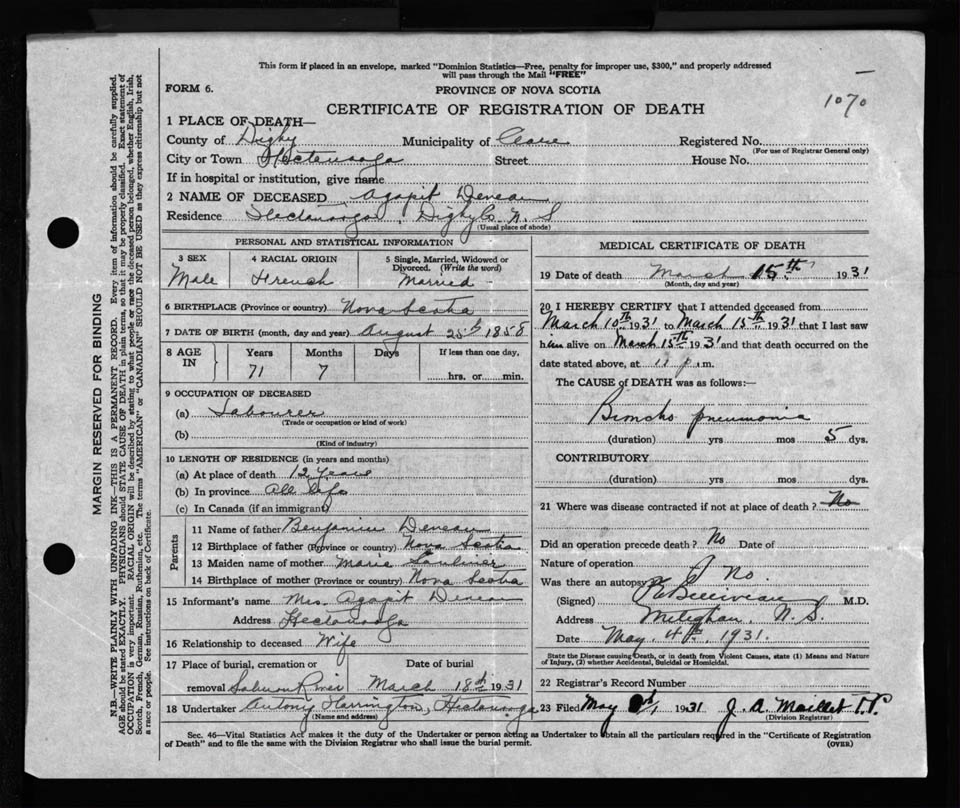 This form if placed in an envelope, marked "Dominion Statistics—Free, penalty for improper use, $300," and properly addressed
will pass through the Mail "FREE"
FORM 6.
PROVINCE OF NOVA SCOTIA
1070
CERTIFICATE OF REGISTRATION OF DEATH
1 PLACE OF DEATH—
County of Digby Municipality of Clare Registered No.
(For use of Registrar General only)
City or Town Hectanooga Street House No.
If in hospital or institution, give name
2 NAME OF DECEASED Agapit Deveau
Residence Hectanooga Digby Co. N. S
(Usual place of abode)
PERSONAL AND STATISTICAL INFORMATION
3 SEX 4 RACIAL ORIGIN 5 Single, Married, Widowed or
Divorced. (Write the word)
Male French Married
6 BIRTHPLACE (Province or country) Nova Scotia
7 DATE OF BIRTH (month, day and year) August 25th 1858
8 AGE IN Years Months Days If less than one day,
71 7 hrs. or min.
9 OCCUPATION OF DECEASED
(a) Labourer
(Trade or occupation or kind of work)
(b)
(Kind of industry)
10 LENGTH OF RESIDENCE (in years and months)
(a) At place of death 12 years
(b) In province all life
(c) In Canada (if an immigrant)
Parents
11 Name of father Benjamin Deveau
12 Birthplace of father (Province or country) Nova Scotia
13 Maiden name of mother Marie
14 Birthplace of mother (Province or country) Nova Scotia
15 Informant's name Mrs. Agapit Deveau
Address Hectanooga
16 Relationship to deceased Wife
17 Place of burial, cremation or Date of burial
removal Salmon River March 18th 1931
18 Undertaker Antony Harrington, Hectanooga
(Name and address)
MEDICAL CERTIFICATE OF DEATH
19 Date of death March 15th 1931
(Month, day and year)
20 I HEREBY CERTIFY that I attended deceased from
March 10th 1931 to March 15th 1931 that I last saw
him alive on March 15th 1931 and that death occurred on the
date stated above, at 11 p.m.
The CAUSE of DEATH was as follows:
Broncho pneumonia
(duration) yrs mos 5 dys.
CONTRIBUTORY
(duration) yrs mos dys.
21 Where was disease contracted if not at place of death? No
Did an operation precede death? No Date of
Nature of operation
Was there an autopsy No.
(Signed) M.D.
Address Meteghan, N. S.
Date May 4th 1931.
State the Disease causing Death, or in death from Violent Causes, state (1) Means and Nature
of Injury, (2) whether Accidental, Suicidal or Homicidal.
22 Registrar's Record Number
23 Filed May 1931 J. A. Maillet
(Division Registrar)
Sec. 46—Vital Statistics Act makes it the duty of the Undertaker or person acting as Undertaker to obtain all the particulars required in the "Certificate of Registration
of Death" and to file the same with the Division Registrar who shall issue the burial permit.
(OVER)
MARGIN RESERVED FOR BINDING
N.B.—WRITE PLAINLY WITH UNFADING INK—THIS IS A PERMANENT RECORD. Every item of information should be carefully supplied.
AGE should be stated EXACTLY. PHYSICIANS should STATE CAUSE OF DEATH in plain terms, so that it may be properly classified. Exact statement of
OCCUPATION is very important. RACIAL ORIGIN will be described by stating to what people or race the deceased person belonged, whether English, Irish,
Scotch, French, German, Russian, Ruthenian, etc. The terms "AMERICAN" or "CANADIAN" SHOULD NOT BE USED as they express citizenship but not
a race or people. See instructions on back of Certificate.